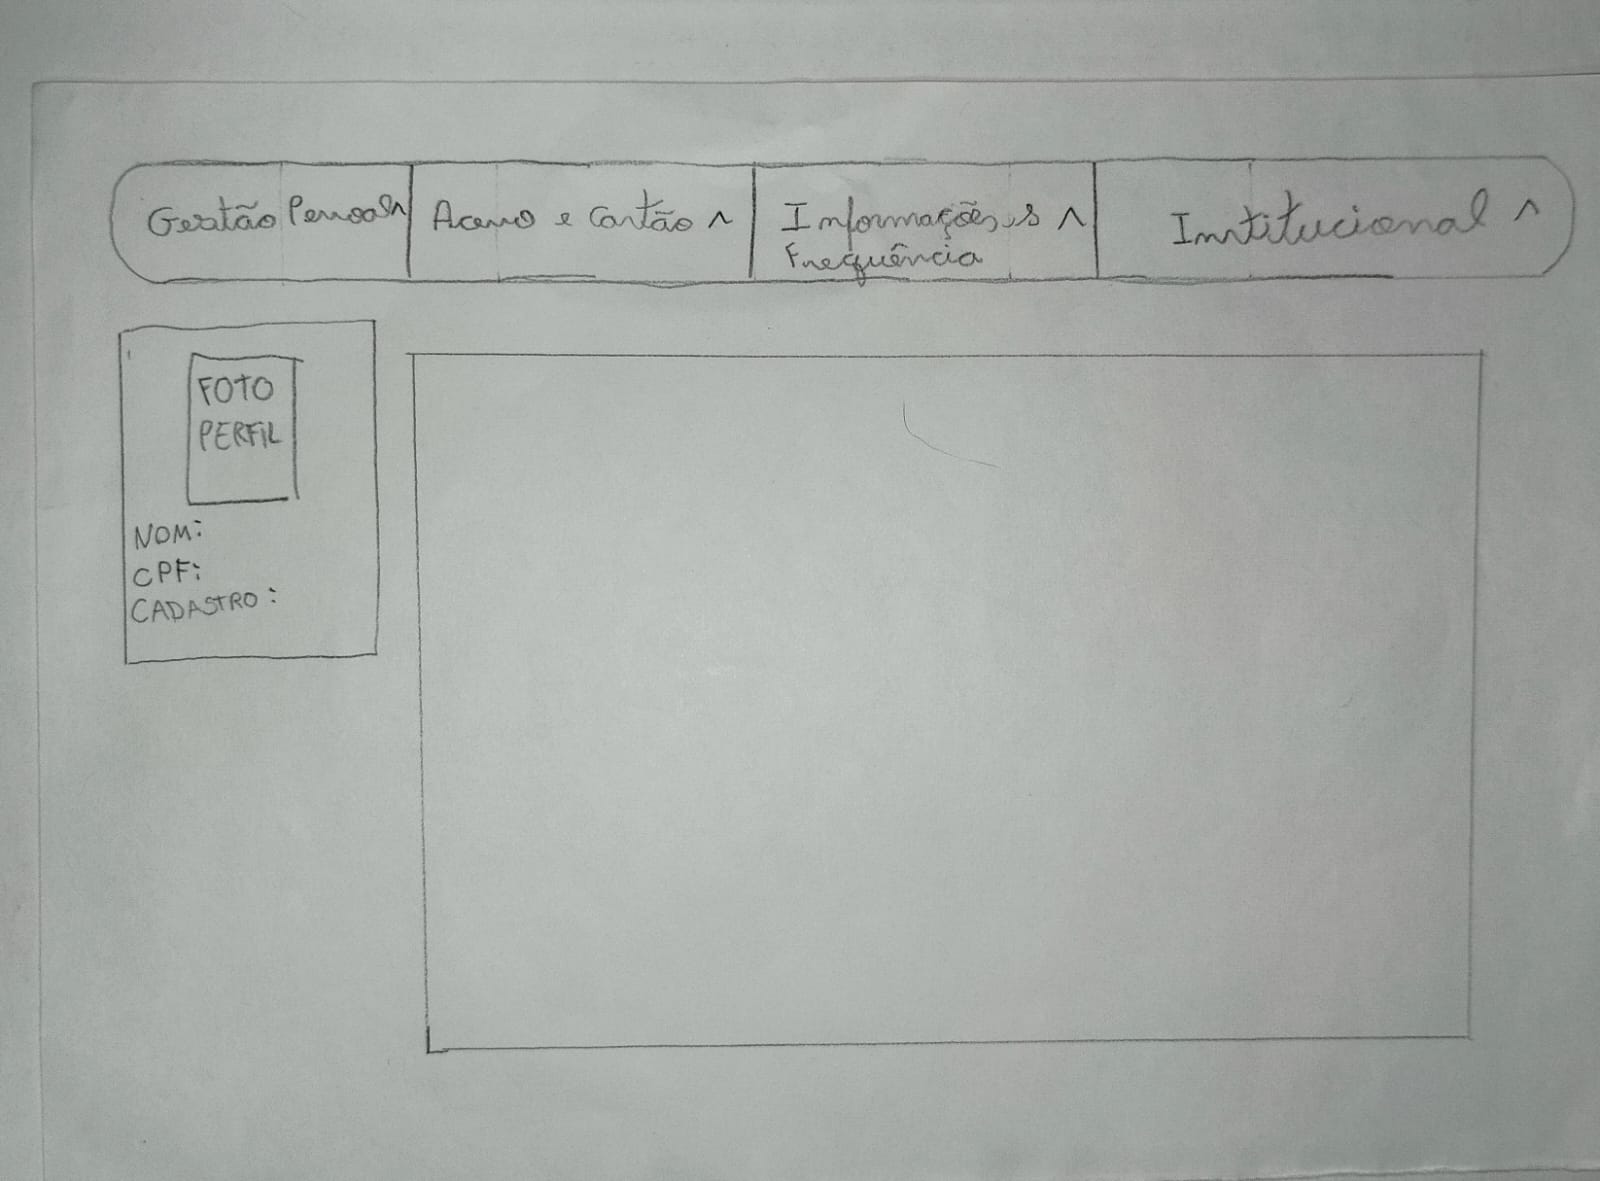 Gestão Pessoal ^
Acervo e Cartão ^
Informações ^
Frequência
Institucional ^
FOTO
PERFIL
NOM:
CPF:
CADASTRO: